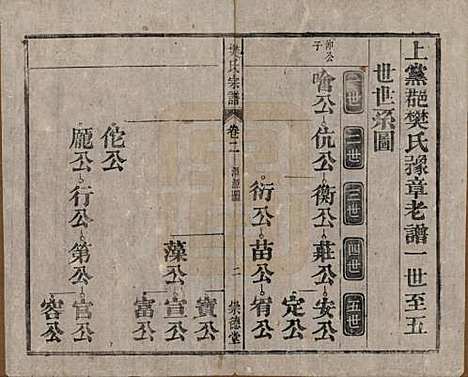 上黨郡樊氏豫章老譜一世至五
世世系圖
一世 二世 三世 四世 五世
仲公
子
噲公 伉公 衡公 莊公 安公
定公
衍公 苗公 宥公
樊氏宗譜 卷二 二 崇德堂
寶公
藻公 宣公
富公
佗公
龐公 行公 第公 官公
容公